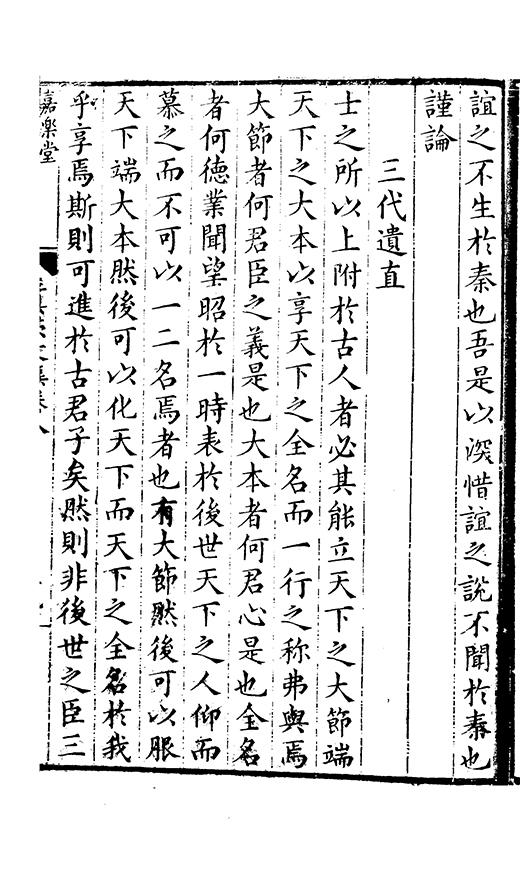 誼之不生於秦也吾是以深惜誼之說不聞於秦也
謹論
三代遺直
士之所以上附於古人者必其能立天下之大節端
天下之大本以享天下之全名而一行之称弗與焉
大節者何君臣之義是也大本者何君心是也全名
者何德業聞望昭於一時表於後世天下之人仰而
慕之而不可以一二名焉者也有大節然後可以服
天下端大本然後可以化天下而天下之全名於我
乎享焉斯則可進於古君子矣然則非後世之臣三
嘉樂堂